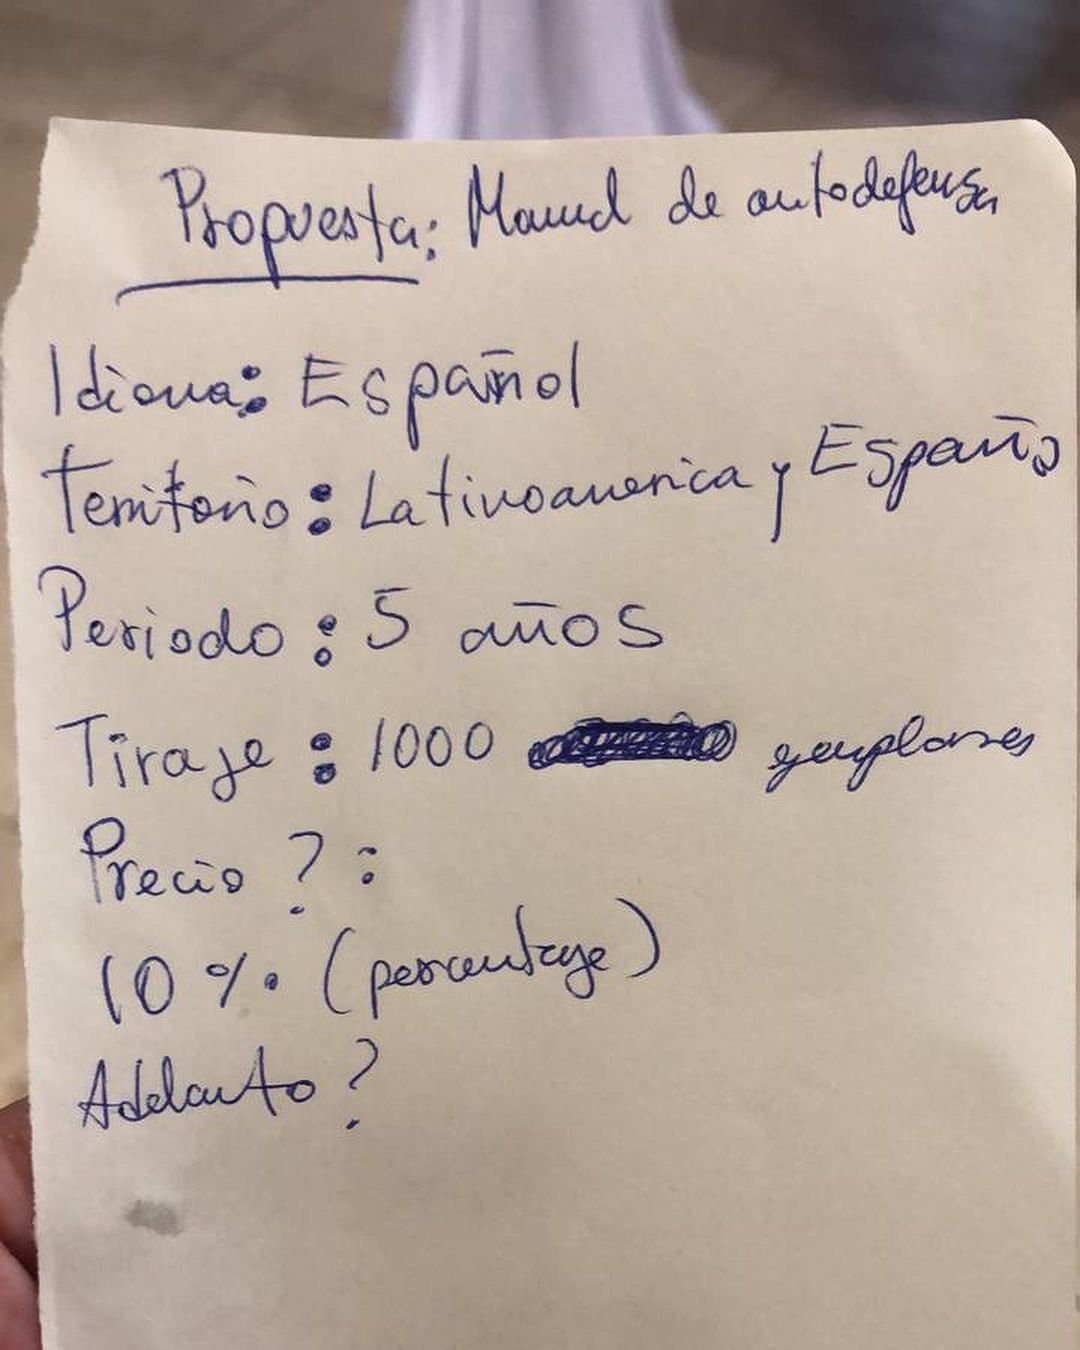 Propuesta: Manual de autodefensa
Idioma: Español
Territorio: Latinoamerica y España
Periodo: 5 años
Tiraje: 1000 ejemplares
Precio ?:
10 % (porcentaje)
Adelanto ?